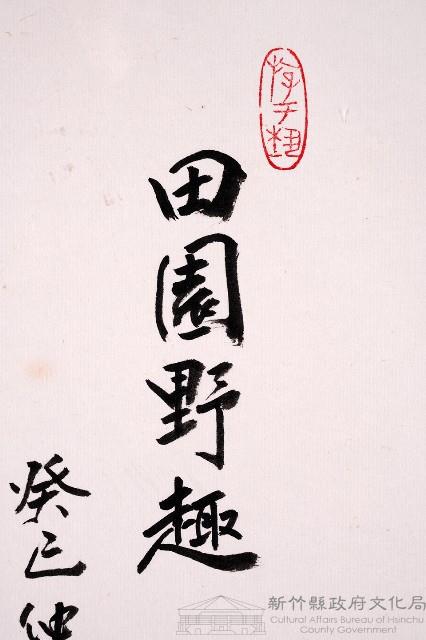 田園野趣
癸巳仲
新竹縣政府文化局
Cultural Affairs Bureau of Hsinchu
County Government